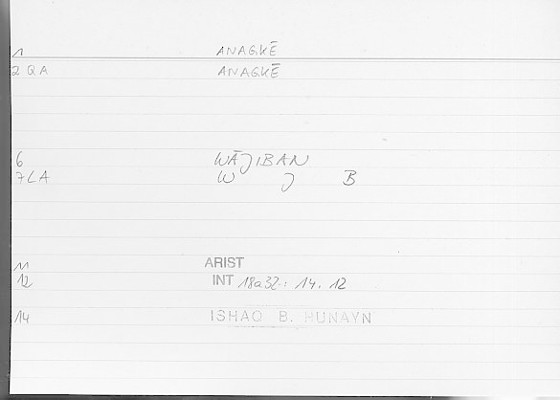 1 ANAGKĒ
2 QA ANAGKĒ
6 WĀJIBAN
7 LA W J B
11 ARIST
12 INT 18a32 : 14. 12
14 ISHAQ B. HUNAYN